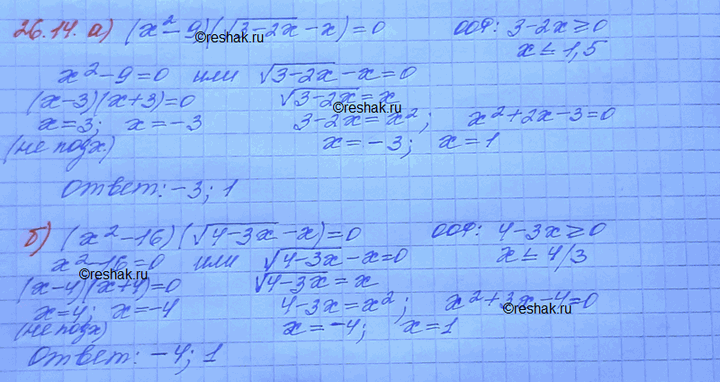 26.14. а) (x² - 9)(√3-2x - x) = 0 ООФ: 3-2x ≥ 0
x ≤ 1,5
x² - 9 = 0 или √3-2x - x = 0
(x-3)(x+3) = 0 √3-2x = x
x = 3; x = -3 3-2x = x²; x² + 2x - 3 = 0
(не подх) x = -3; x = 1
Ответ: -3; 1
б) (x² - 16)(√4-3x - x) = 0 ООФ: 4-3x ≥ 0
x² - 16 = 0 или √4-3x - x = 0 x ≤ 4/3
(x-4)(x+4) = 0 √4-3x = x
x = 4; x = -4 4-3x = x²; x² + 3x - 4 = 0
(не подх) x = -4; x = 1
Ответ: -4; 1
©reshak.ru
©reshak.ru
©reshak.ru
©reshak.ru